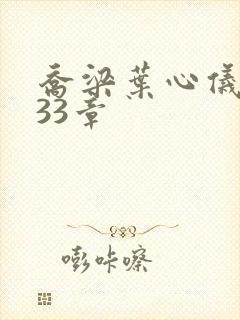 乔梁葉心儀
33章
嘭咔嚓